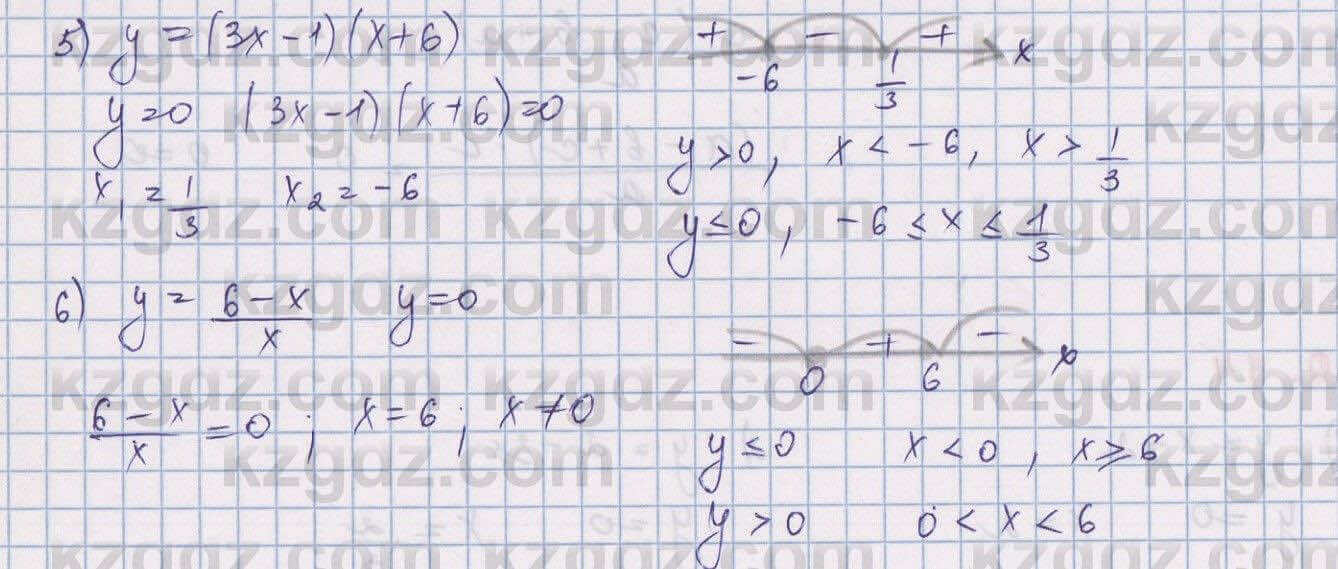 5) y = (3x-1)(x+6)
y=0 (3x-1)(x+6)=0
x₁ = 1/3 x₂ = -6
+ - + x
-6 1/3
y>0, x < -6, x > 1/3
y≤0, -6 ≤ x ≤ 1/3
6) y = (6-x)/x y=0
(6-x)/x = 0; x=6; x≠0
- + - x
0 6
y≤0 x<0, x≥6
y>0 0<x<6
kzgdz.com